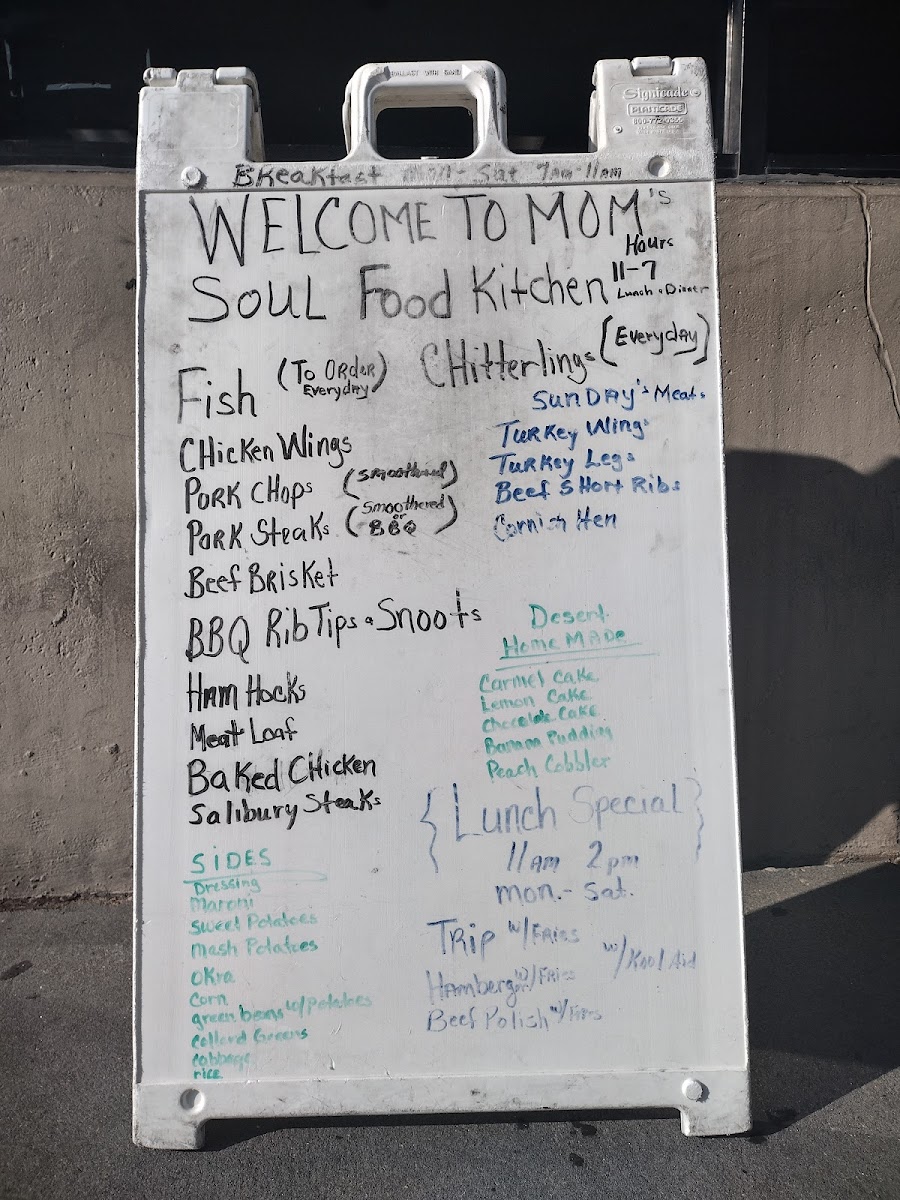 BALLAST WITH SAND
Signicade
PLASTICADE
Breakfast mon - Sat 7am - 11am
WELCOME TO MOM's
SOUL Food Kitchen
Hours
11-7
Lunch & Dinner
Fish (To Order Everyday)
CHitterlings (Everyday)
CHicken Wings
PORK CHops (Smoothered)
PORK Steaks (Smoothered or BBQ)
Beef Brisket
BBQ Rib Tips & Snoots
HAM Hocks
Meat Loaf
Baked CHicken
Salibury Steaks
SUNDAY's Meats
Turkey Wings
Turkey Legs
Beef SHort Ribs
Cornish Hen
Desert
Home MADe
Carmel Cake
Lemon Cake
Chocolate Cake
Banana Pudding
Peach Cobbler
SIDES
Dressing
Maroni
Sweet Potatoes
Mash Potatoes
OKra
Corn
green beans w/potatoes
Collard Greens
Cabbage
rice
{Lunch Special}
11am 2pm
mon.- Sat.
Trip w/Fries
w/Kool Aid
Hamberger w/Fries
Beef Polish w/Fries